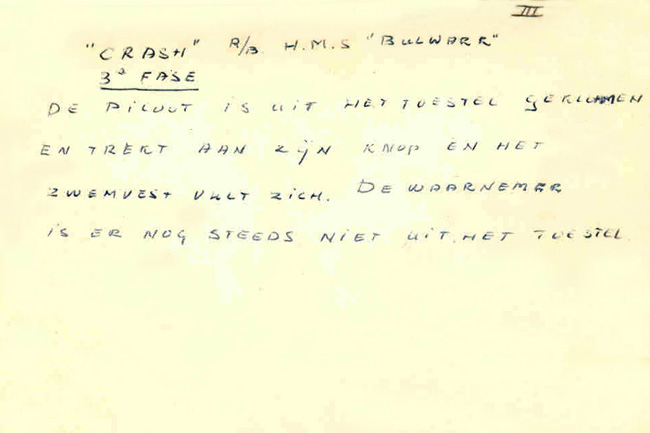 III
"CRASH" A/B H.M.S "BULWARK"
3e FASE
DE PILOOT IS UIT HET TOESTEL GEKLOMMEN
EN TREKT AAN ZIJN KNOP EN HET
ZWEMVEST VULT ZICH. DE WAARNEMER
IS ER NOG STEEDS NIET UIT HET TOESTEL.